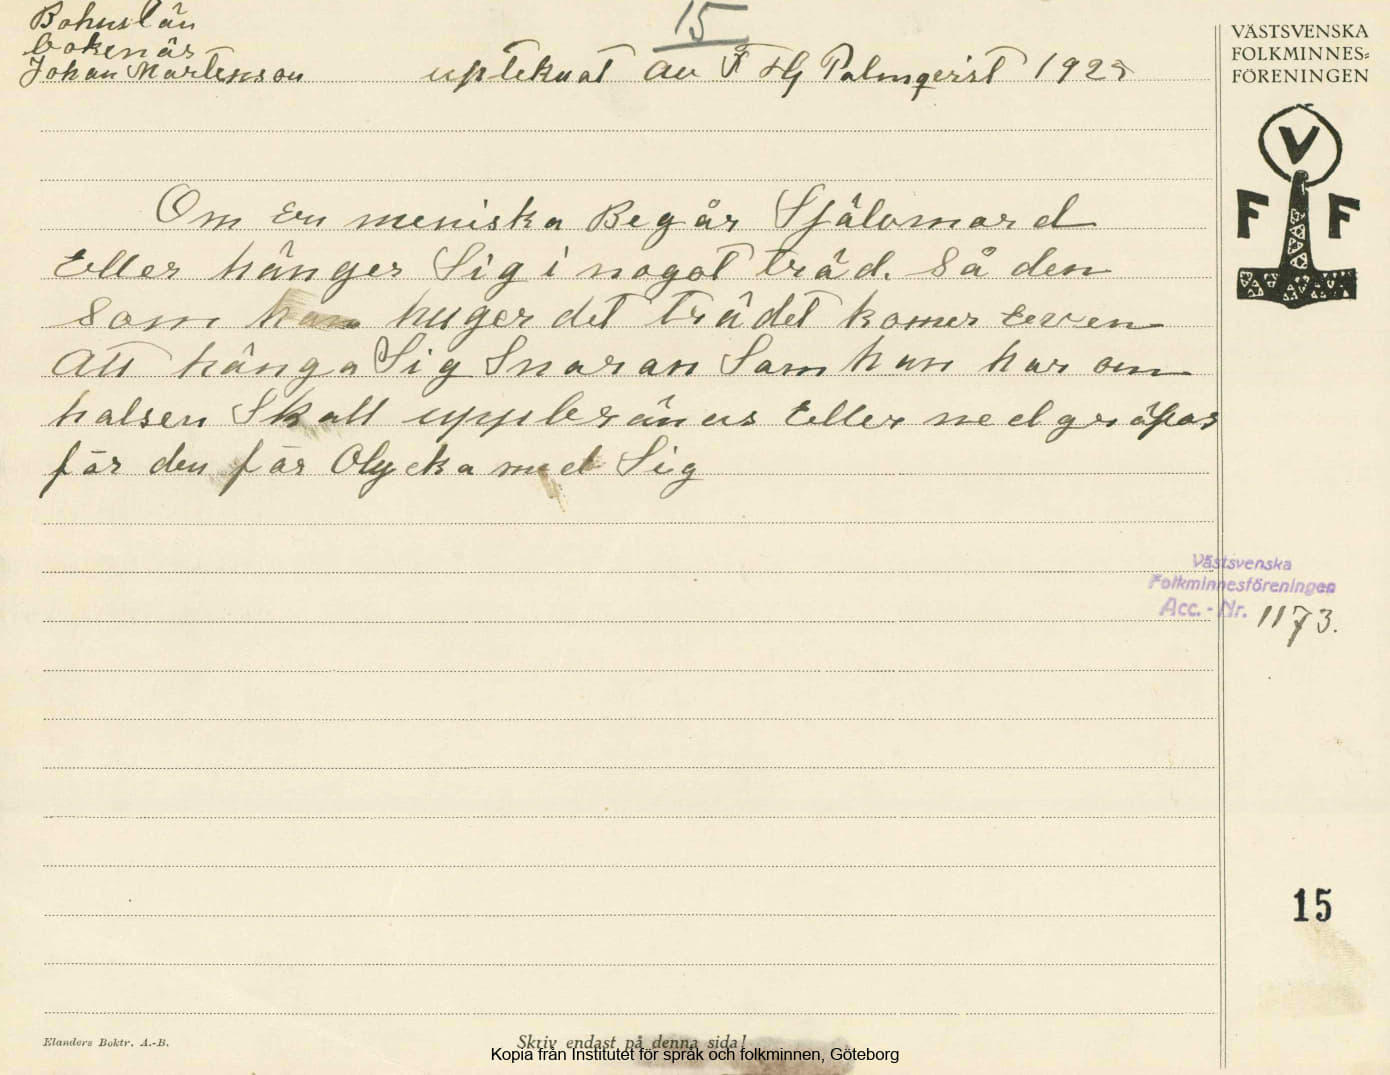 Bohuslän
Bokenäs
Johan Martenson upteknat av F Hj Palmqvist 192
15
VÄSTSVENSKA
FOLKMINNES=
FÖRENINGEN
V
F F
Om en meniska Begår Självmord
Eller hänger Sig i nogot träd. Så den
som han huger det trädet komer even
att hänga Sig Snaran Som han har om
halsen Skall uppbränas Eller nedgräfas
för den för Olycka med Sig
Västsvenska
Folkminnesföreningen
Acc. - Nr. 1173.
15
Elanders Boktr. A.-B.
Skriv endast på denna sida!
Kopia från Institutet för språk och folkminnen, Göteborg